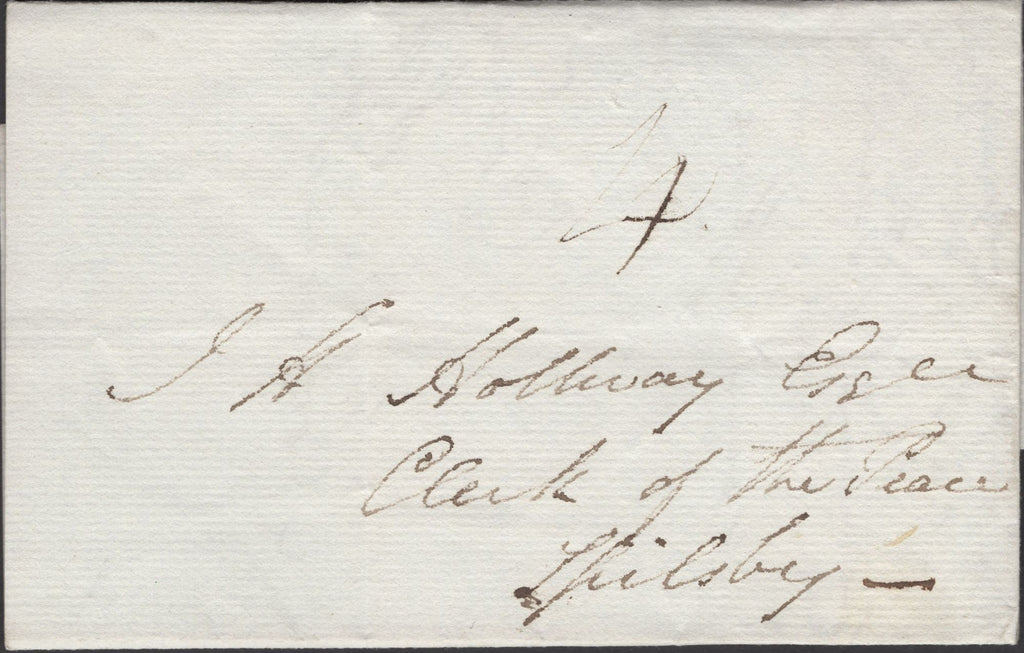 4
J H Hollway Esqr
Clerk of the Peace
Spilsby —